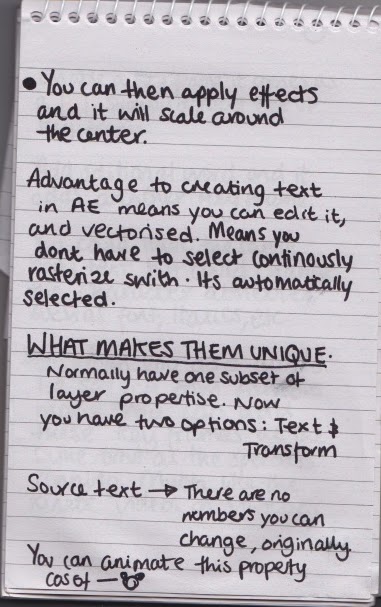 • You can then apply effects
and it will scale around
the center.
Advantage to creating text
in AE means you can edit it,
and vectorised. Means you
dont have to select continously
rasterize swith. Its automatically
selected.
WHAT MAKES THEM UNIQUE.
Normally have one subset of
layer propertise. Now
you have two options: Text &
Transform
Source text → There are no
numbers you can
change, originally
You can animate this property
cos of →